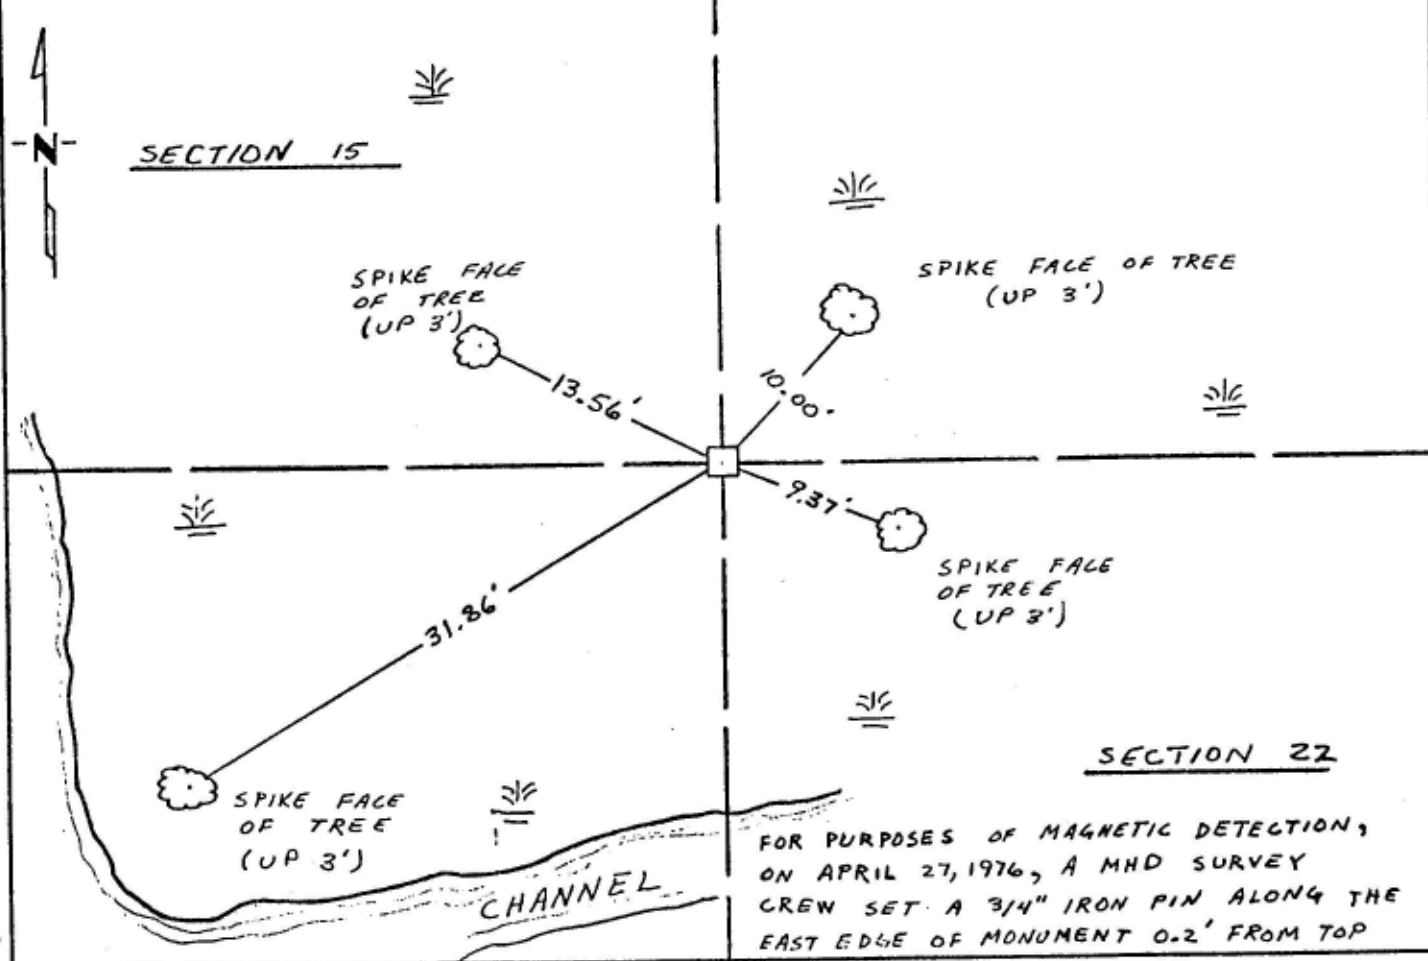 N
SECTION 15
SPIKE FACE
OF TREE
(UP 3')
SPIKE FACE OF TREE
(UP 3')
13.56'
10.00'
9.37'
31.86'
SPIKE FACE
OF TREE
(UP 3')
SECTION 22
SPIKE FACE
OF TREE
(UP 3')
CHANNEL
FOR PURPOSES OF MAGNETIC DETECTION,
ON APRIL 27, 1976, A MHD SURVEY
CREW SET A 3/4" IRON PIN ALONG THE
EAST EDGE OF MONUMENT 0.2' FROM TOP